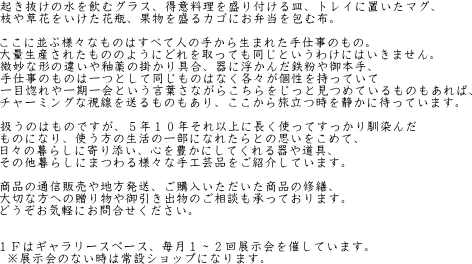 起き抜けの水を飲むグラス、得意料理を盛り付ける皿、トレイに置いたマグ、
枝や草花をいけた花瓶、果物を盛るカゴにお弁当を包む布。
ここに並ぶ様々なものはすべて人の手から生まれた手仕事のもの。
大量生産されたもののようにどれを取っても同じというわけにはいきません。
微妙な形の違いや釉薬の掛かり具合、器に浮かんだ鉄粉や御本手、
手仕事のものは一つとして同じものはなく各々が個性を持っていて
一目惚れや一期一会という言葉さながらこちらをじっと見つめているものもあれば、
チャーミングな視線を送るものもあり、ここから旅立つ時を静かに待っています。
扱うのはものですが、５年１０年それ以上に長く使ってすっかり馴染んだ
ものになり、使う方の生活の一部になれたらとの思いをこめて、
日々の暮らしに寄り添い、心を豊かにしてくれる器や道具、
その他暮らしにまつわる様々な手工芸品をご紹介しています。
商品の通信販売や地方発送、ご購入いただいた商品の修繕、
大切な方への贈り物や御引き出物のご相談も承っております。
どうぞお気軽にお問合せください。
１Ｆはギャラリースペース、毎月１～２回展示会を催しています。
※展示会のない時は常設ショップになります。